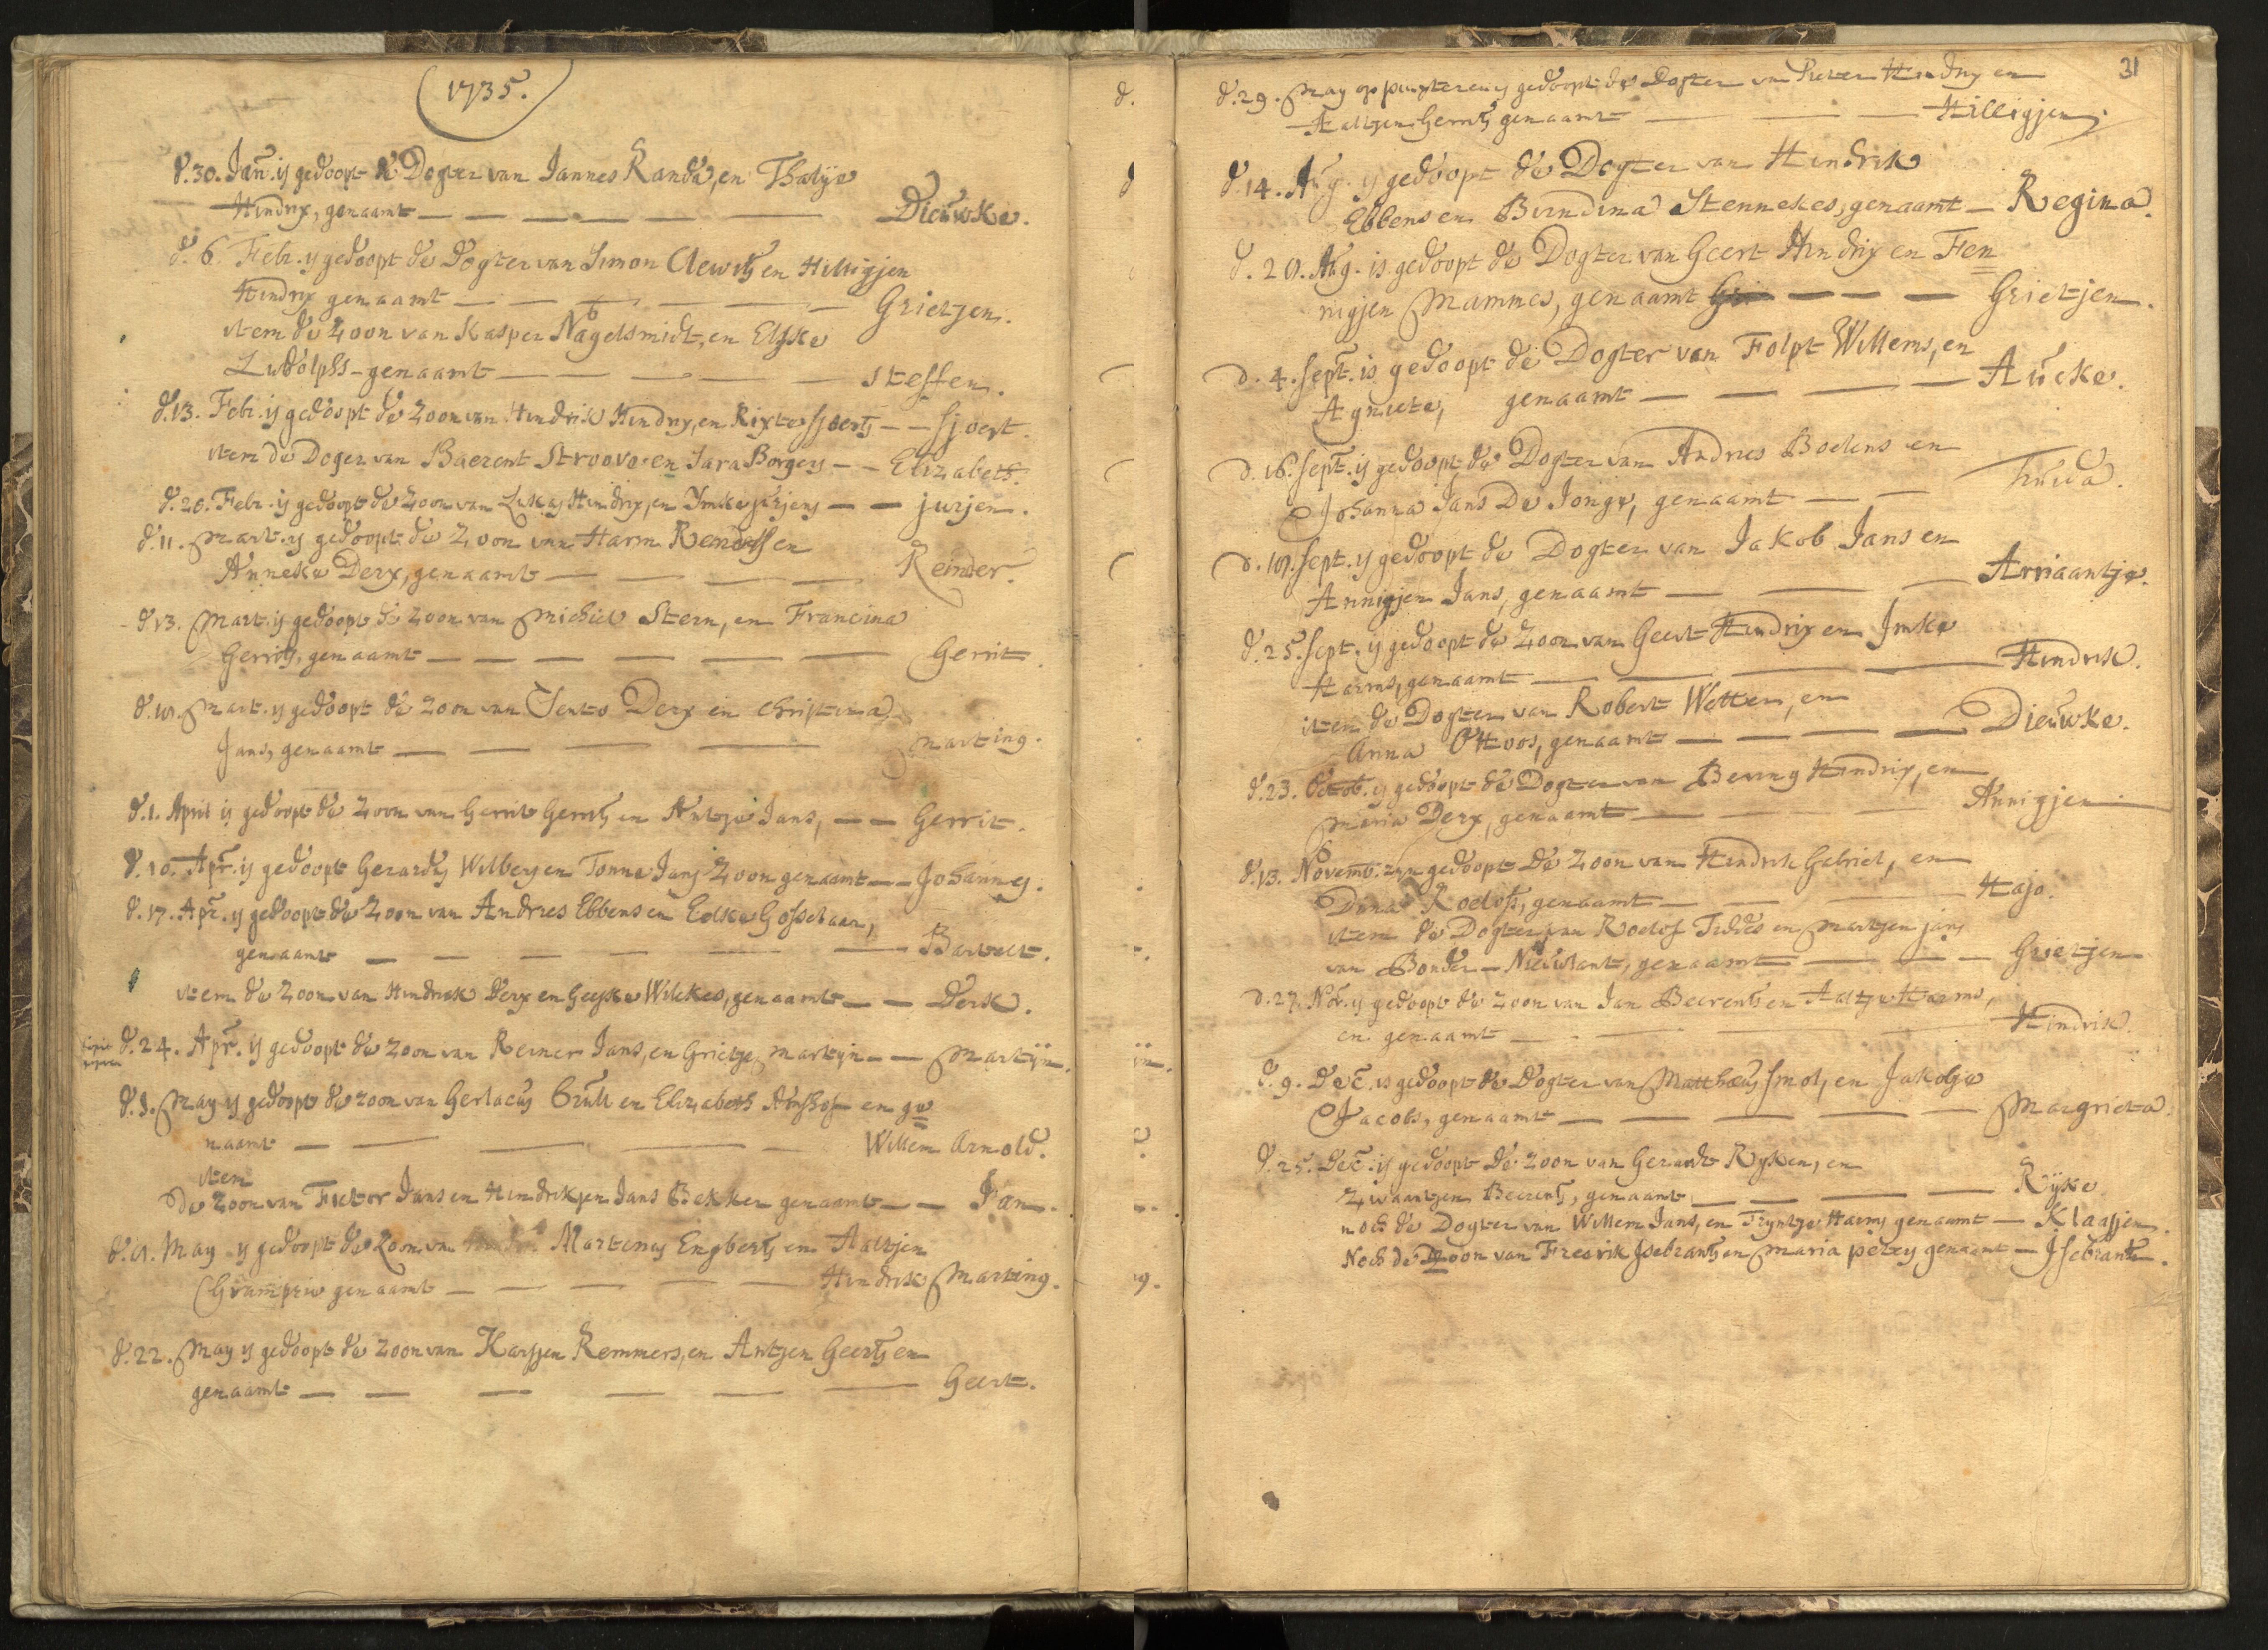 (1735.)
d. 30. Jan. is gedoopt de Dogter van Jannes Randa, en Thalije
Hindrix, genaamt — — — — — — Dieuwke.
d. 6. Febr. is gedoopt de Dogter van Simon Clewits en Hilligjen
Hindrix genaamt — — — — — Grietjen.
item de Zoon van Kasper Nagelsmidt, en Elske
Ludolphs - genaamt — — — — — Steffen.
d. 13. Febr. is gedoopt de Zoon van Hindrik Hindrix, en Rixte Sjoerts — — Sjoert.
item de Doger van Baerent Stroovo en Sara Borgers — — Elizabeth.
d. 20. Febr. is gedoopt de Zoon van Lukas Hindrix, en Imke jurjens — — jurjen.
d. 11. Mart. is gedoopt de Zoon van Harm Reinders en
Anneke Derx, genaamt — — — — Reinder.
d 13. Mart. is gedoopt de Zoon van Michiel Stern, en Francina
Gerrits, genaamt — — — — — — Gerrit.
Mart. is gedoopt de Zoon van Derx en Christina
Jans, genaamt — — — — Martinq.
d. 1. April is gedoopt de Zoon van Gerrit Gerrits en Antje Jans, — — Gerrit.
d. 10. Apr. is gedoopt Gerardus Wilbers en Tonna Jans Zoon genaamt — — Johannes.
d. 17. Apr. is gedoopt de Zoon van Andries Ebbens en Eelke Gosselaar,
genaamt — — — — — — Bartelt.
item de Zoon van Hindrik Derx en Geeske Wilckes, genaamt — — Derk.
d. 24. Apr. is gedoopt de Zoon van Reiner Jans, en Grietje Martijn — — Martijn.
May is gedoopt de zoon van Gerlacus en Elizabeth en ge=
naamt — — — — — Willem Arnold.
item
De Zoon van Fietor Jans en Hindrikjen Jans Bekker genaamt — — Jan.
May is gedoopt de Zoon van Martinus Engberts en Aaltjen
genaamt — — — — Hindrik Martinq.
d. 22. May is gedoopt de Zoon van Karsjen Remmers, en Antjen Geerts en
genaamt — — — — — — Geert.
31
d. 29. May op pinxteren is gedoopt de Dogter van Pieter Hindrix en
Aaltjen Gerrits genaamt — — — Hilligjen.
d. 14. Aug. is gedoopt de Dogter van Hindrik
Ebbens en Berndina Stennekes, genaamt — Regina.
Aug. is gedoopt de Dogter van Geert Hindrix en Fen=
nigjen Mammes, genaamt — — — Grietjen.
d. 4. Sept. is gedoopt de Dogter van Folpt Willems, en
Agniete, genaamt — — — — Aucke.
d. 16. Sept. is gedoopt de Dogter van Andries Boelens en
Johanna Jans De Jonge, genaamt — — Truida.
Sept. is gedoopt de Dogter van Jakob Jans en
Annigjen Jans, genaamt — — — Arriaantje.
d. 25. Sept. is gedoopt de Zoon van Geert Hindrix en Imke
Harms, genaamt — — — — — Hindrik.
item de Dogter van Robert Wetter, en
Anna Ottoos, genaamt — — — — Dieuwke.
d. 23. Octob. is gedoopt de Dogter van Bering Hindrix, en
Maria Derx, genaamt — — — Annigjen
d. 13. Novemb. zyn gedoopt De Zoon van Hindrik Gabriel, en
Dina Roelofs, genaamt — — — Hajo.
item de Dogter van Roelof Tiddes en Martjen jans
van Bonder-Nieuwlant, genaamt — — — Grietjen
d. 27. Nov. is gedoopt de Zoon van Jan Beerents en Aaltje Harms,
en genaamt — — — — Hindrik.
d. 9. Dec. is gedoopt de Dogter van Mattheus Smol, en Jakobje
Jacobs, genaamt — — — — — Margrieta.
d. 25. Dec. is gedoopt De Zoon van Gerardt Ryken, en
Zwaantjen Beerents, genaamt — — — — Rijke
noch de Dogter van Willem Jans, en Tryntje Harms genaamt — Klaasjen.
Noch de Zoon van Fredrik Isebrants en Maria peters genaamt — Isebrant.